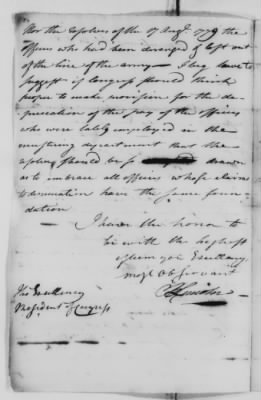 Nor the resolves of the 17 Augt. 1779 the
officers who had been deranged & left out
of the line of the army — I beg leave to
suggest if Congress should think
proper to make provision for the de-
preciation of the pay of the officers
who were lately employed in the
mustering department that the
resolve should be so drawn
as to embrace all officers whose claim
to have the same foun-
dation
I have the honor to
be with the highest
esteem your Excellency
most Obt servant
B Lincoln
His Excellency
President of Congress